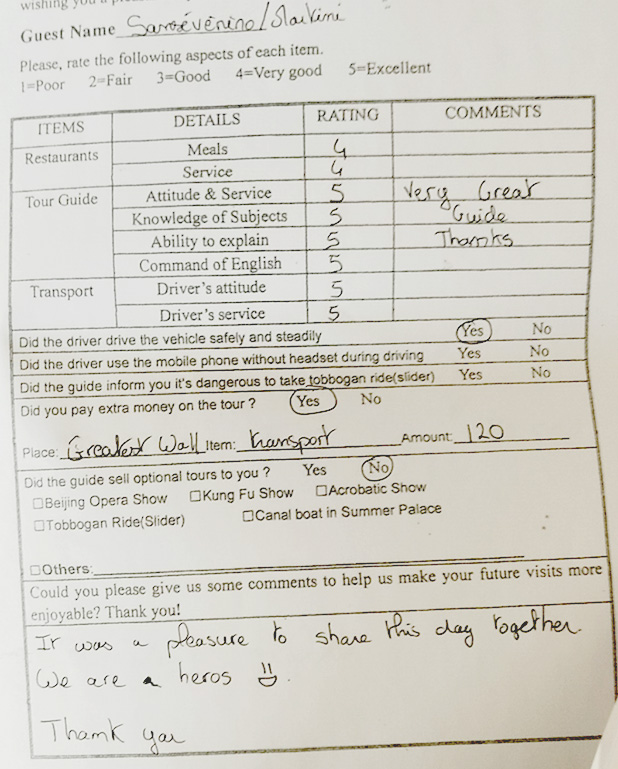 wishing you a
Guest Name Sansévérino/Slatkini
Please, rate the following aspects of each item.
1=Poor 2=Fair 3=Good 4=Very good 5=Excellent
ITEMS DETAILS RATING COMMENTS
Restaurants Meals 4
Service 4
Tour Guide Attitude & Service 5 Very Great
Knowledge of Subjects 5 Guide
Ability to explain 5 Thanks
Command of English 5
Transport Driver's attitude 5
Driver's service 5
Did the driver drive the vehicle safely and steadily Yes No
Did the driver use the mobile phone without headset during driving Yes No
Did the guide inform you it's dangerous to take tobbogan ride(slider) Yes No
Did you pay extra money on the tour ? Yes No
Place: Greatest Wall Item: transport Amount: 120
Did the guide sell optional tours to you ? Yes No
□Beijing Opera Show □Kung Fu Show □Acrobatic Show
□Tobbogan Ride(Slider) □Canal boat in Summer Palace
□Others:
Could you please give us some comments to help us make your future visits more
enjoyable? Thank you!
It was a pleasure to share this day together.
We are a heros .
Thank you